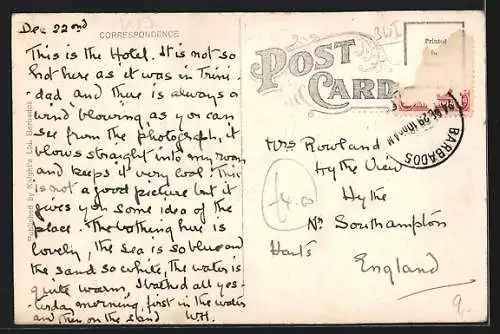 Dec 22nd
CORRESPONDENCE
This is the Hotel. It is not so
hot here as it was in Trini-
dad and there is always a
wind blowing as you can
see from the photograph, it
blows straight into my room
and keeps it very cool! This
is not a good picture but it
gives you some idea of the
place. The bathing here is
lovely, the sea is so blue and
the sand so white, the water is
quite warm, I bathed all yes-
terday morning, first in the water
and then on the sand WH.
Published by Knight's Ltd. Barbados
BWI
POST
CARD
Printed
in
BARBADOS
Mrs Rowland
Hythe View
Hythe
Nr Southampton
Hants
England
£4.00
9.-